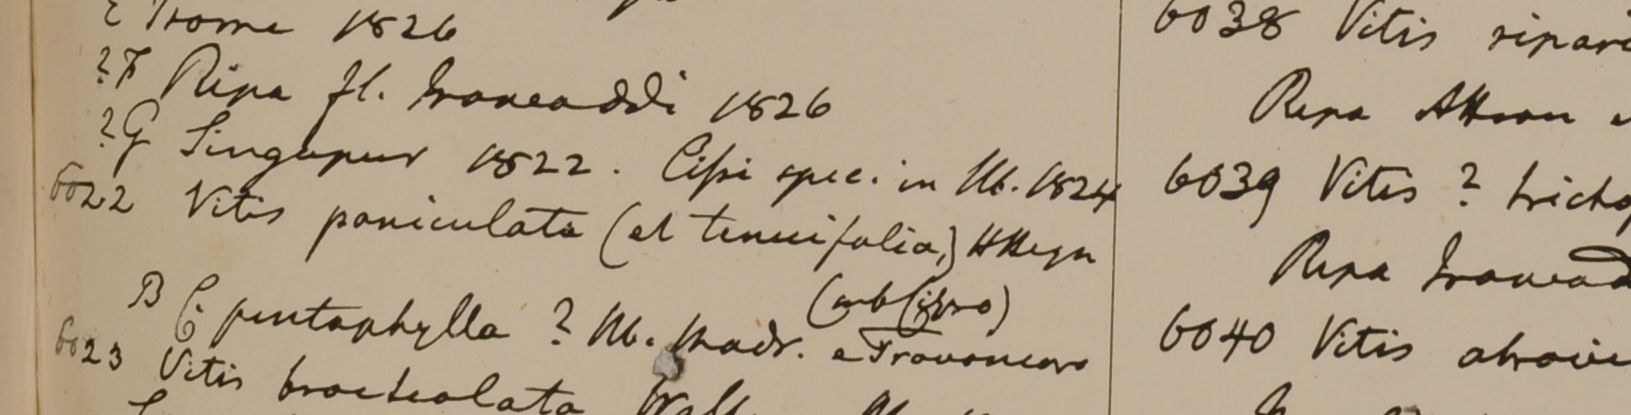 E Prome 1826
?F Ripa fl. Irawaddi 1826
?G Singapur 1822. Cissi spec. in Hb. 1824
6022 Vitis paniculata (et tenuifolia,) HHeyn
(sub Cisso)
B C. pentaphylla? Hb. Madr. e Travancore
6023 Vitis bracteolata Wall.
6038 Vitis ripari
Ripa Attran
6039 Vitis ? tricho
Ripa Irawad
6040 Vitis